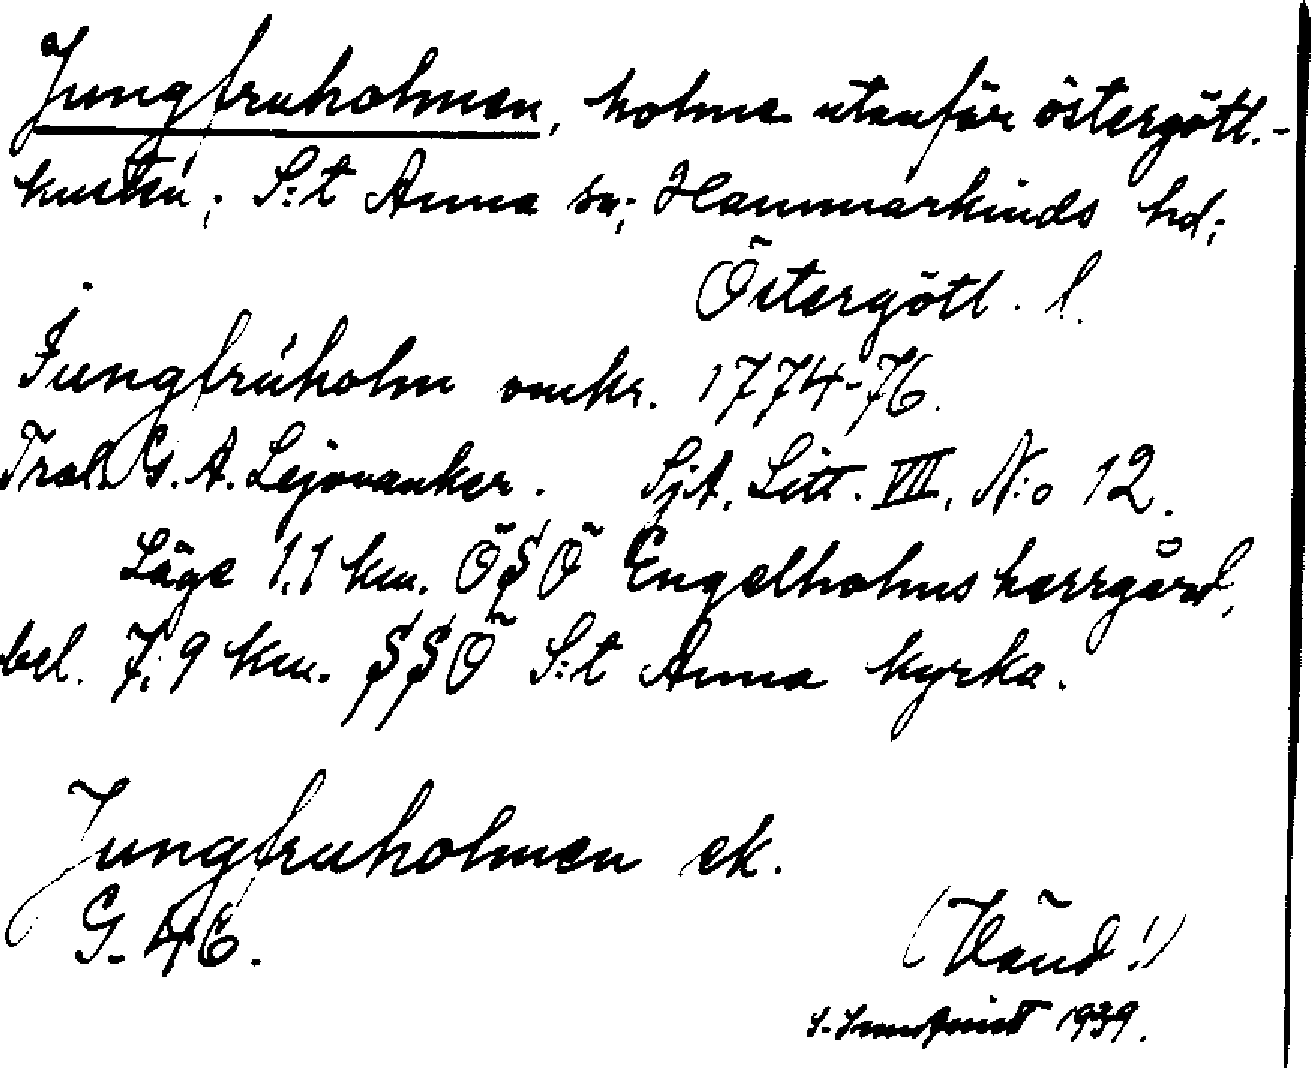 Jungfruholmen, holme utanför östergötl.-
kusten; S:t Anna sn; Hammarkinds hd;
Östergötl. l.
Jungfrúholm omkr. 1774-76.
Trol. G. A. Lejonanker. SjA. Litt. VII, N:o 12.
Läge 1,1 km. ÖSÖ Engelholms herrgård,
bel. 7,9 km. SSÖ S:t Anna kyrka.
Jungfruholmen ek.
G. 46.
(Vänd!)
1939.